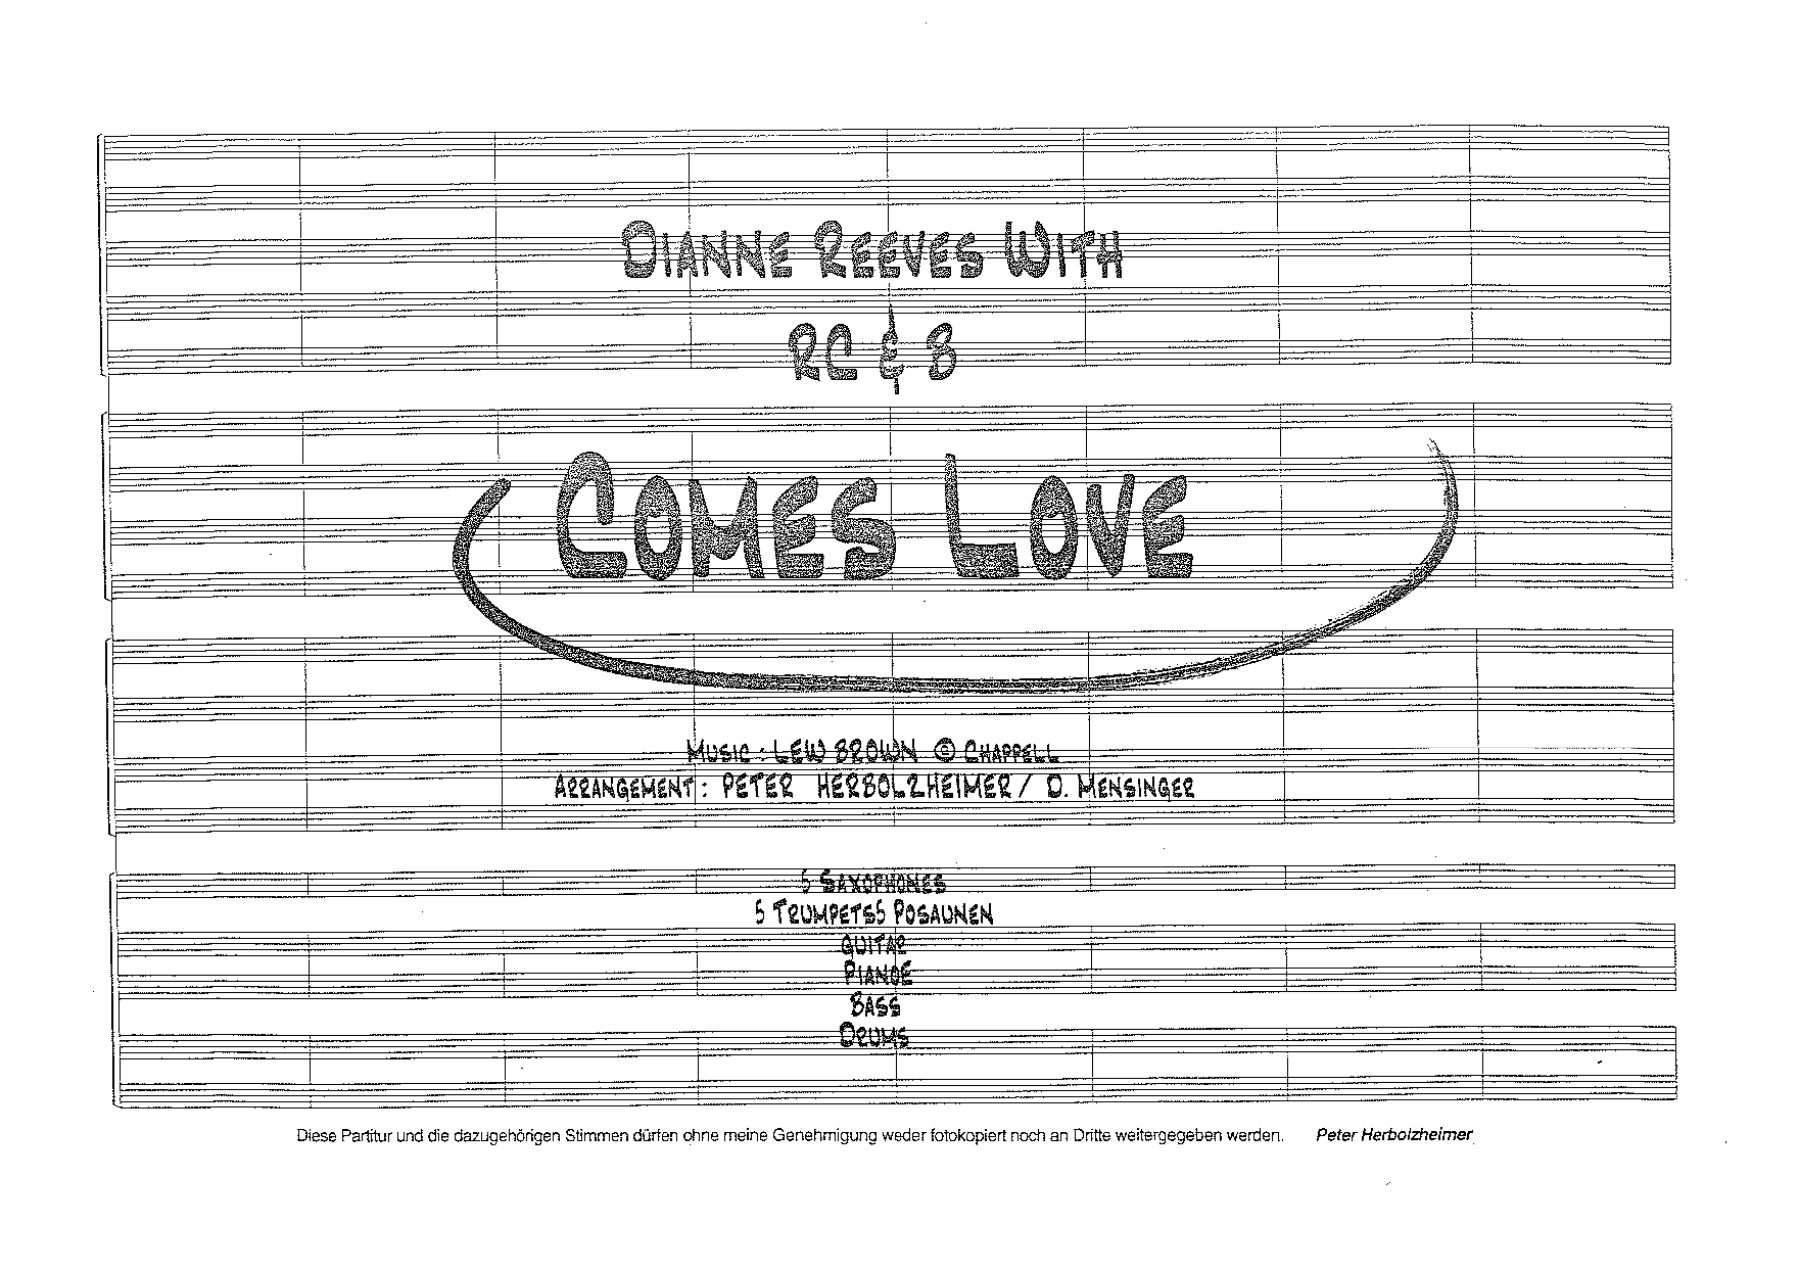 DIANNE REEVES WITH
RC & B
COMES LOVE
MUSIC : LEW BROWN © CHAPPELL
ARRANGEMENT : PETER HERBOLZHEIMER / D. MENSINGER
5 SAXOPHONES
5 TRUMPETS5 POSAUNEN
GUITAR
PIANOE
BASS
DRUMS
Diese Partitur und die dazugehörigen Stimmen dürfen ohne meine Genehmigung weder fotokopiert noch an Dritte weitergegeben werden. Peter Herbolzheimer